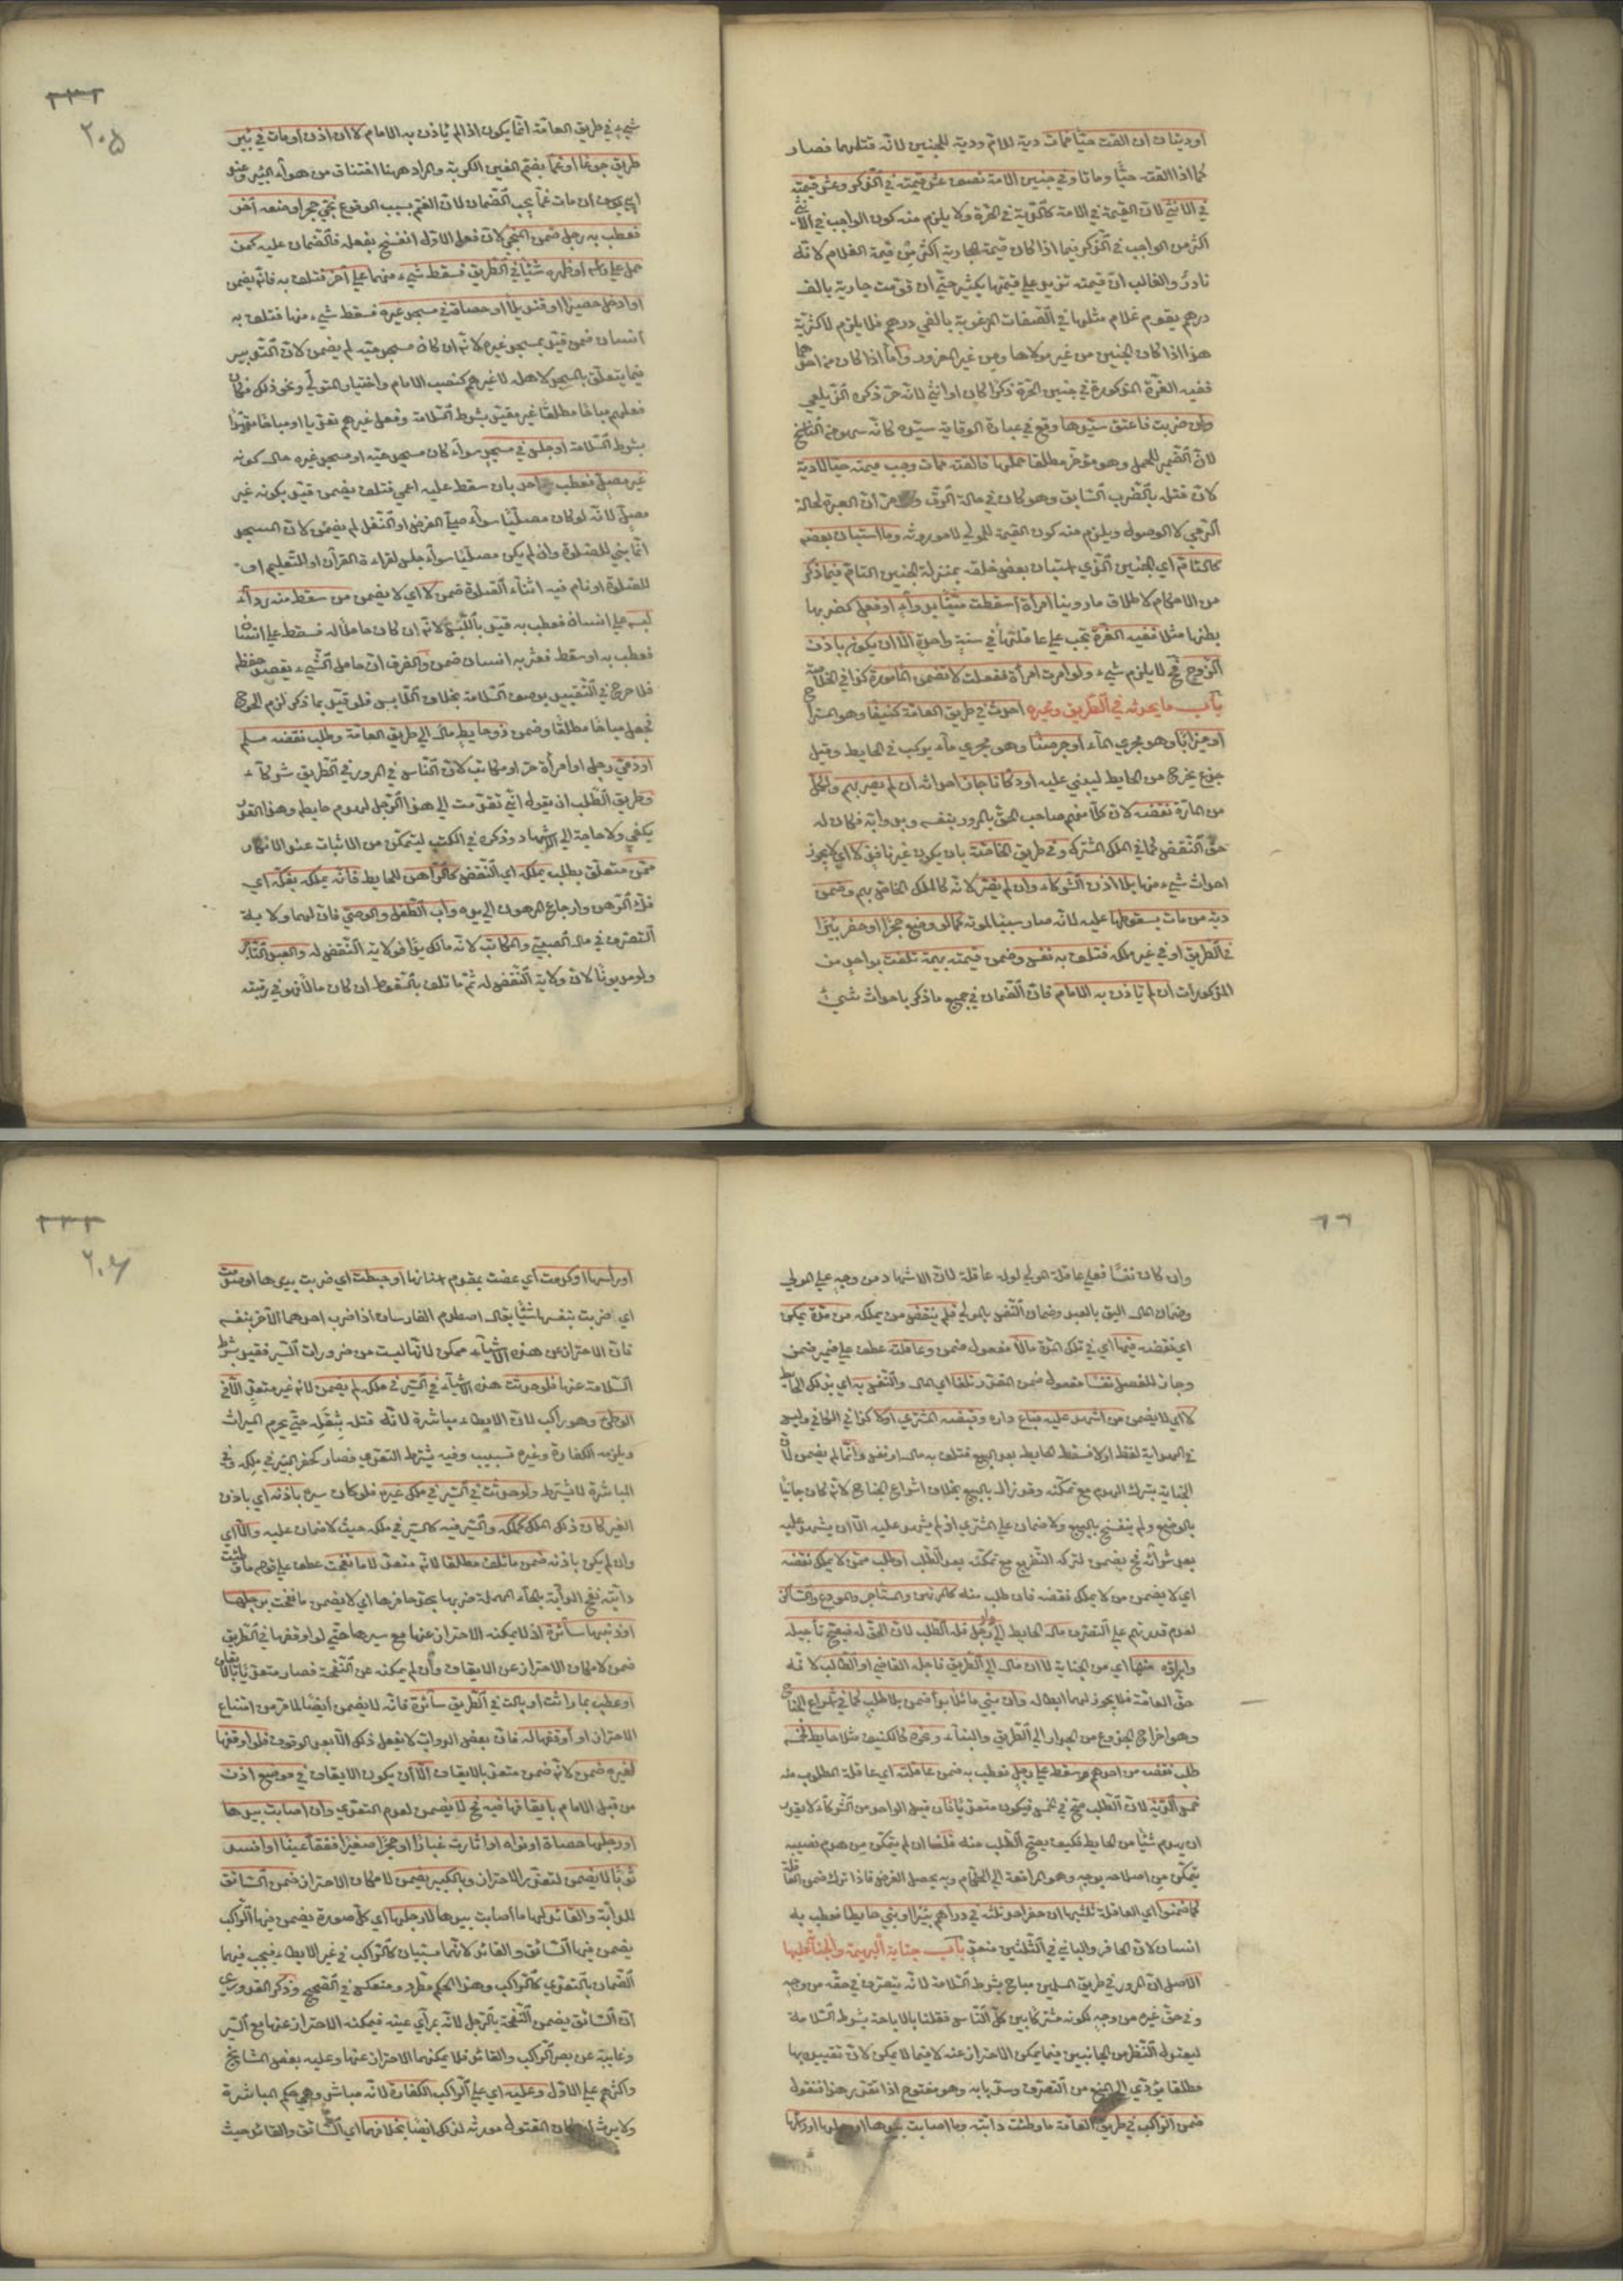 او ديتان ان القت حيّا فمات دية للام ودية للجنين لانه قتلهما فصار
كما اذا القته حيّا وماتا وفي جنين الامة نصف عشر قيمته في الذكر وعشر قيمته
في الانثى لان القيمة في الامة كالدية في الحرة ولا يلزم منه كون الواجب في الانثى
اكثر من الواجب في الذكر فيما اذا كان قيمة الجارية اكثر من قيمة الغلام لانه
نادر والغالب ان قيمته تزيد على قيمتها بكثير حتى ان قومت جارية بالف
درهم يقوم غلام مثلها في الصفات المرغوبة بالفي درهم فلا يلزم الاكثرية
هذا اذا كان الجنين من غير مولاها ومن غير المغرور واما اذا كان من احدهما
ففيه الغرة المذكورة في جنين الحرة ذكرا كان او انثى لانه حر ذكره الزيلعي
وان ضربت فاعتق سيدها وقع في عبارة الوقاية سيده كانه سهو من الناسخ
لان الضمير للحمل وهو مؤخر مطلقا حملها فالقته فمات وجب قيمته حيا لا دية
لان قتله بالضرب السابق وهو كان في حالة الرق ان العبرة لحالة
الرمي لا الوصول ويلزم منه كون القيمة للمولى لا موروثه وما استبان بعضه
كالتام اي الجنين الذي استبان بعض خلقه بمنزلة الجنين التام فيما ذكر
من الاحكام لاطلاق ما روينا امرأة اسقطت ميتا بدواء او فعل كضربها
بطنها مثلا ففيه الغرة تجب على عاقلتها في سنة واحدة الا ان يكون باذن
الزوج فح لا يلزم شيء ولو امرت امرأة ففعلت لا تضمن المأمورة كذا في الخلاصة
باب ما يحدثه في الطريق وغيره احدث في طريق العامة كنيفا وهو المستراح
او ميزابا وهو مجرى الماء او جرصنا وهو مجرى ماء يركب في الحايط وقيل
جذع يخرج من الحايط ليبنى عليه او دكانا جاز احداثه ان لم يضر بهم ولكل
من المارة نقضه لان كلا منهم صاحب الحق بالمرور بنفسه وبدوابه فكان له
حق النقض كما في الملك المشترك وفي طريق الخاصة بان يكون غير نافذ لا اي لا يجوز
احداث شيء منها بلا اذن الشركاء وان لم يضر لانه كالملك الخاص بهم وضمن
دية من مات بسقوطها عليه لانه صار سببا لموته كما لو وضع حجرا او حفر بئرا
في الطريق او في غير ملكه فتلف به نفس وضمن قيمة بهيمة تلفت بواحد من
المذكورات ان لم يأذن به الامام فان الضمان في جميع ما ذكر باحداث شيئ
٢٠٥
شيء في طريق العامة انما يكون اذا لم يأذن به الامام لا ان اذن او مات في بئر
طريق جوعا او غما بفتح الغين المراد ههنا اختناق من هواء البئر وعند
ابي يوسف ان مات غما يجب الضمان لان الغم بسبب الوقوع نحى حجرا وضعه آخر
فعطب به رجل ضمن المنحي لان فعل الاول انفسخ بفعله فالضمان عليه كمن
حمل على رأسه او ظهره شيئا في الطريق فسقط شيء منهما على آخر فتلف به فانه يضمن
او ادخل حصيرا او قنديلا او حصاة في مسجد غيره فسقط شيء منها فتلف به
انسان ضمن قيد بمسجد غيره لانه ان كان مسجد حيه لم يضمن لان التدبير
فيما يتعلق بالمسجد لاهله لا غيرهم كنصب الامام واختيار المتولي ونحو ذلك فكان
فعلهم مباحا مطلقا غير مقيد بشرط السلامة وفعل غيرهم تعديا او مباحا مقيدا
بشرط السلامة او جلس في مسجد سواء كان مسجد حيه او مسجد غيره حال كونه
غير مصل فعطب احد بان سقط عليه اعمى فتلف يضمن قيد بكونه غير
مصل لانه لو كان مصليا سواء صلى الفرض او النفل لم يضمن لان المسجد
انما بني للصلوة وان لم يكن مصليا سواء جلس لقراءة القرآن او للتعليم او
للصلوة او نام فيه اثناء الصلوة ضمن لا اي لا يضمن من سقط منه رداء
لبسه على انسان فعطب به قيد باللبس لانه ان كان حاملا له فسقط على انسان
فعطب به او سقط فعثر به انسان ضمن والفرق ان حامل الشيء يقصد حفظه
فلا حرج في التقييد بوصف السلامة بخلاف اللابس فلو قيد بما ذكر لزم الحرج
فجعل مباحا مطلقا وضمن ذو حايط مال الى طريق العامة وطلب نقضه مسلم
او ذمي رجل او امرأة حر او مكاتب لان الناس في المرور في الطريق شركاء
وطريق الطلب ان يقول اني تقدمت الى هذا الرجل لهدم حايطه وهذا القدر
يكفي ولا حاجة الى الاشهاد وذكره في الكتب ليتمكن من الاثبات عند الانكار
ممن متعلق بطلب يملكه اي النقض كالراهن للحايط فانه يملكه بفكه اي
فك الرهن وارجاع المرهون الى يده واب الطفل والوصي فان لهما ولاية
التصرف في مال الصبي والمكاتب لانه مالك يدا فولاية النقض له والعبد التاجر
ولو مديونا لان ولاية النقض له ثم ما تلف بالسقوط ان كان مالا فهو في رقبته
وان كان نفسا فعلى عاقلة المولى لو له عاقلة لان الاشهاد من وجه على المولى
وضمان المال اليق بالعبد وضمان النفس بالمولى فلم ينقض من يملكه من مدة يمكن
اي نقضه فيها اي في تلك المدة مالا مفعول ضمن وعاقلته عطف على ضمير ضمن
وجاز للفصل نفسا مفعول ضمن المقدر تلفا اي المال والنفس به اي بذلك الحايط
لا اي لا يضمن من اشهد عليه فباع داره وقبضه المشتري او لا كذا في الكافي وليس
في الهداية لفظ او لا فسقط الحايط بعد البيع فتلف به مال او نفس وانما لم يضمن لان
الجناية بترك الهدم مع تمكنه وقد زال بالبيع بخلاف اشراع الجناح لانه كان جانيا
بالوضع ولم ينفسخ بالبيع ولا ضمان على المشتري اذ لم يشهد عليه الا ان يشهد عليه
بعد شرائه فح يضمن لتركه التفريغ مع تمكنه بعد الطلب او طلب ممن لا يملك نقضه
اي لا يضمن من لا يملك نقضه فان طلب منه كالمرتهن والمستأجر والمودع والساكن
لعدم قدرتهم على التصرف مال الحايط الى دار رجل فله الطلب لان الحق له فيصح تأجيله
وابراؤه منها اي من الجناية لا ان مال الى الطريق فاجله القاضي او الطالب لانه
حق العامة فلا يجوز لهما ابطاله وان بنى مائلا بدأ ضمن بلا طلب كما في اشراع الجناح
وهو اخراج الجذوع من الجدار الى الطريق والبناء وغيره كالكنيف مثلا حايط لخمسة
طلب نقضه من احدهم وسقط على رجل فعطب به ضمن عاقلته اي عاقلة المطلوب منه
خمس الدية لان الطلب صح في الخمس فيكون متعديا فان قيل الواحد من الشركاء لا يقدر
ان يهدم شيئا من الحايط فكيف يصح الطلب منه قلنا ان لم يتمكن من هدم نصيبه
يتمكن من اصلاحه بوجه وهو المرافعة الى الحكام وبه يحصل الغرض فاذا ترك ضمن العاقلة
كما ضمنوا اي العاقلة ثلثيها ان حفر احد ثلثة في دارهم بئرا او بنى حايطا فعطب به
انسان لان الحافر والباني في الثلثين متعد باب جناية البهيمة والجناية عليها
الاصل ان المرور في طريق المسلمين مباح بشرط السلامة لانه يتصرف في حقه من وجه
وفي حق غيره من وجه لكونه مشتركا بين كل الناس فقلنا بالاباحة بشرط السلامة
ليعتدل النظر من الجانبين فيما يمكن الاحتراز عنه لا فيما لا يمكن لان تقييده بها
مطلقا يؤدي الى المنع من التصرف وسد بابه وهو مفتوح اذا تقرر هذا فنقول
ضمن الراكب في طريق العامة ما وطئت دابته وما اصابت بيدها او رجلها او رأسها
٢٠٦
او رأسها او كدمت اي عضت بمقدم اسنانها او خبطت اي ضربت بيدها او صدمت
اي ضربت بنفسها شيئا يقال اصطدم الفارسان اذا ضرب احدهما الآخر بنفسه
فان الاحتراز عن هذه الاشياء ممكن لانها ليست من ضرورات السير فقيد بشرط
السلامة عنها فلو حدثت هذه الاشياء في السير في ملكه لم يضمن لانه غير متعد الا في
الوطئ وهو راكب لان الايطاء مباشرة لانه قتله بثقله حتى يحرم الميراث
ويلزمه الكفارة وغيره تسبيب وفيه يشترط التعدي فصار كحفر البئر في ملكه وفي
المباشرة لا يشترط ولو حدثت في السير في ملك غيره فلو كان سيره باذنه اي باذن
الغير كان ذلك الملك كملكه والسير فيه كالسير في ملكه حيث لا ضمان عليه والا اي
وان لم يكن باذنه ضمن ما تلف مطلقا لانه متعد لا ما نفحت عطف على قوله ما وطئت
دابته نفح الدابة بالحاء المهملة ضربها بحد حافرها اي لا يضمن ما نفحت برجلها
او ذنبها سائرة اذ لا يمكنه الاحتراز عنها مع سيرها حتى لو اوقفها في الطريق
ضمن لامكان الاحتراز عن الايقاف وان لم يمكنه عن النفحة فصار متعديا بالايقاف
او عطب بما راثت او بالت في الطريق سائرة فانه لا يضمن ايضا لما مر من امتناع
الاحتراز او اوقفها له فان بعض الدواب لا يفعل ذلك الا بعد الوقوف فلو اوقفها
لغيره ضمن لانه ضمن متعد بالايقاف الا ان يكون الايقاف في موضع اذن
من قبل الامام بايقافها فيه فح لا يضمن لعدم التعدي وان اصابت بيدها
او رجلها حصاة او نواة او اثارت غبارا او حجرا صغيرا ففقأ عينا او افسد
ثوبا لا يضمن لتعذر الاحتراز وبالكبير يضمن لامكان الاحتراز ضمن السائق
للدابة والقائد لها ما اصابت بيدها لا رجلها اي كل صورة يضمن فيها الراكب
يضمن فيها السائق والقائد لانهما مسببان كالراكب في غير الايطاء فيجب فيهما
الضمان بالتعدي كالراكب وهذا الحكم مطرد ومنعكس في الصحيح وذكر القدوري
ان السائق يضمن النفحة بالرجل لانه بمرأى عينه فيمكنه الاحتراز عنها مع السير
وغايبة عن بصر الراكب والقائد فلا يمكنهما الاحتراز عنها وعليه بعض المشايخ
واكثرهم على الاول وعليه اي على الراكب الكفارة لانه مباشر وهي حكم المباشرة
ولا يرث المقتول مورثه لذلك ايضا بخلافهما اي السائق والقائد حيث